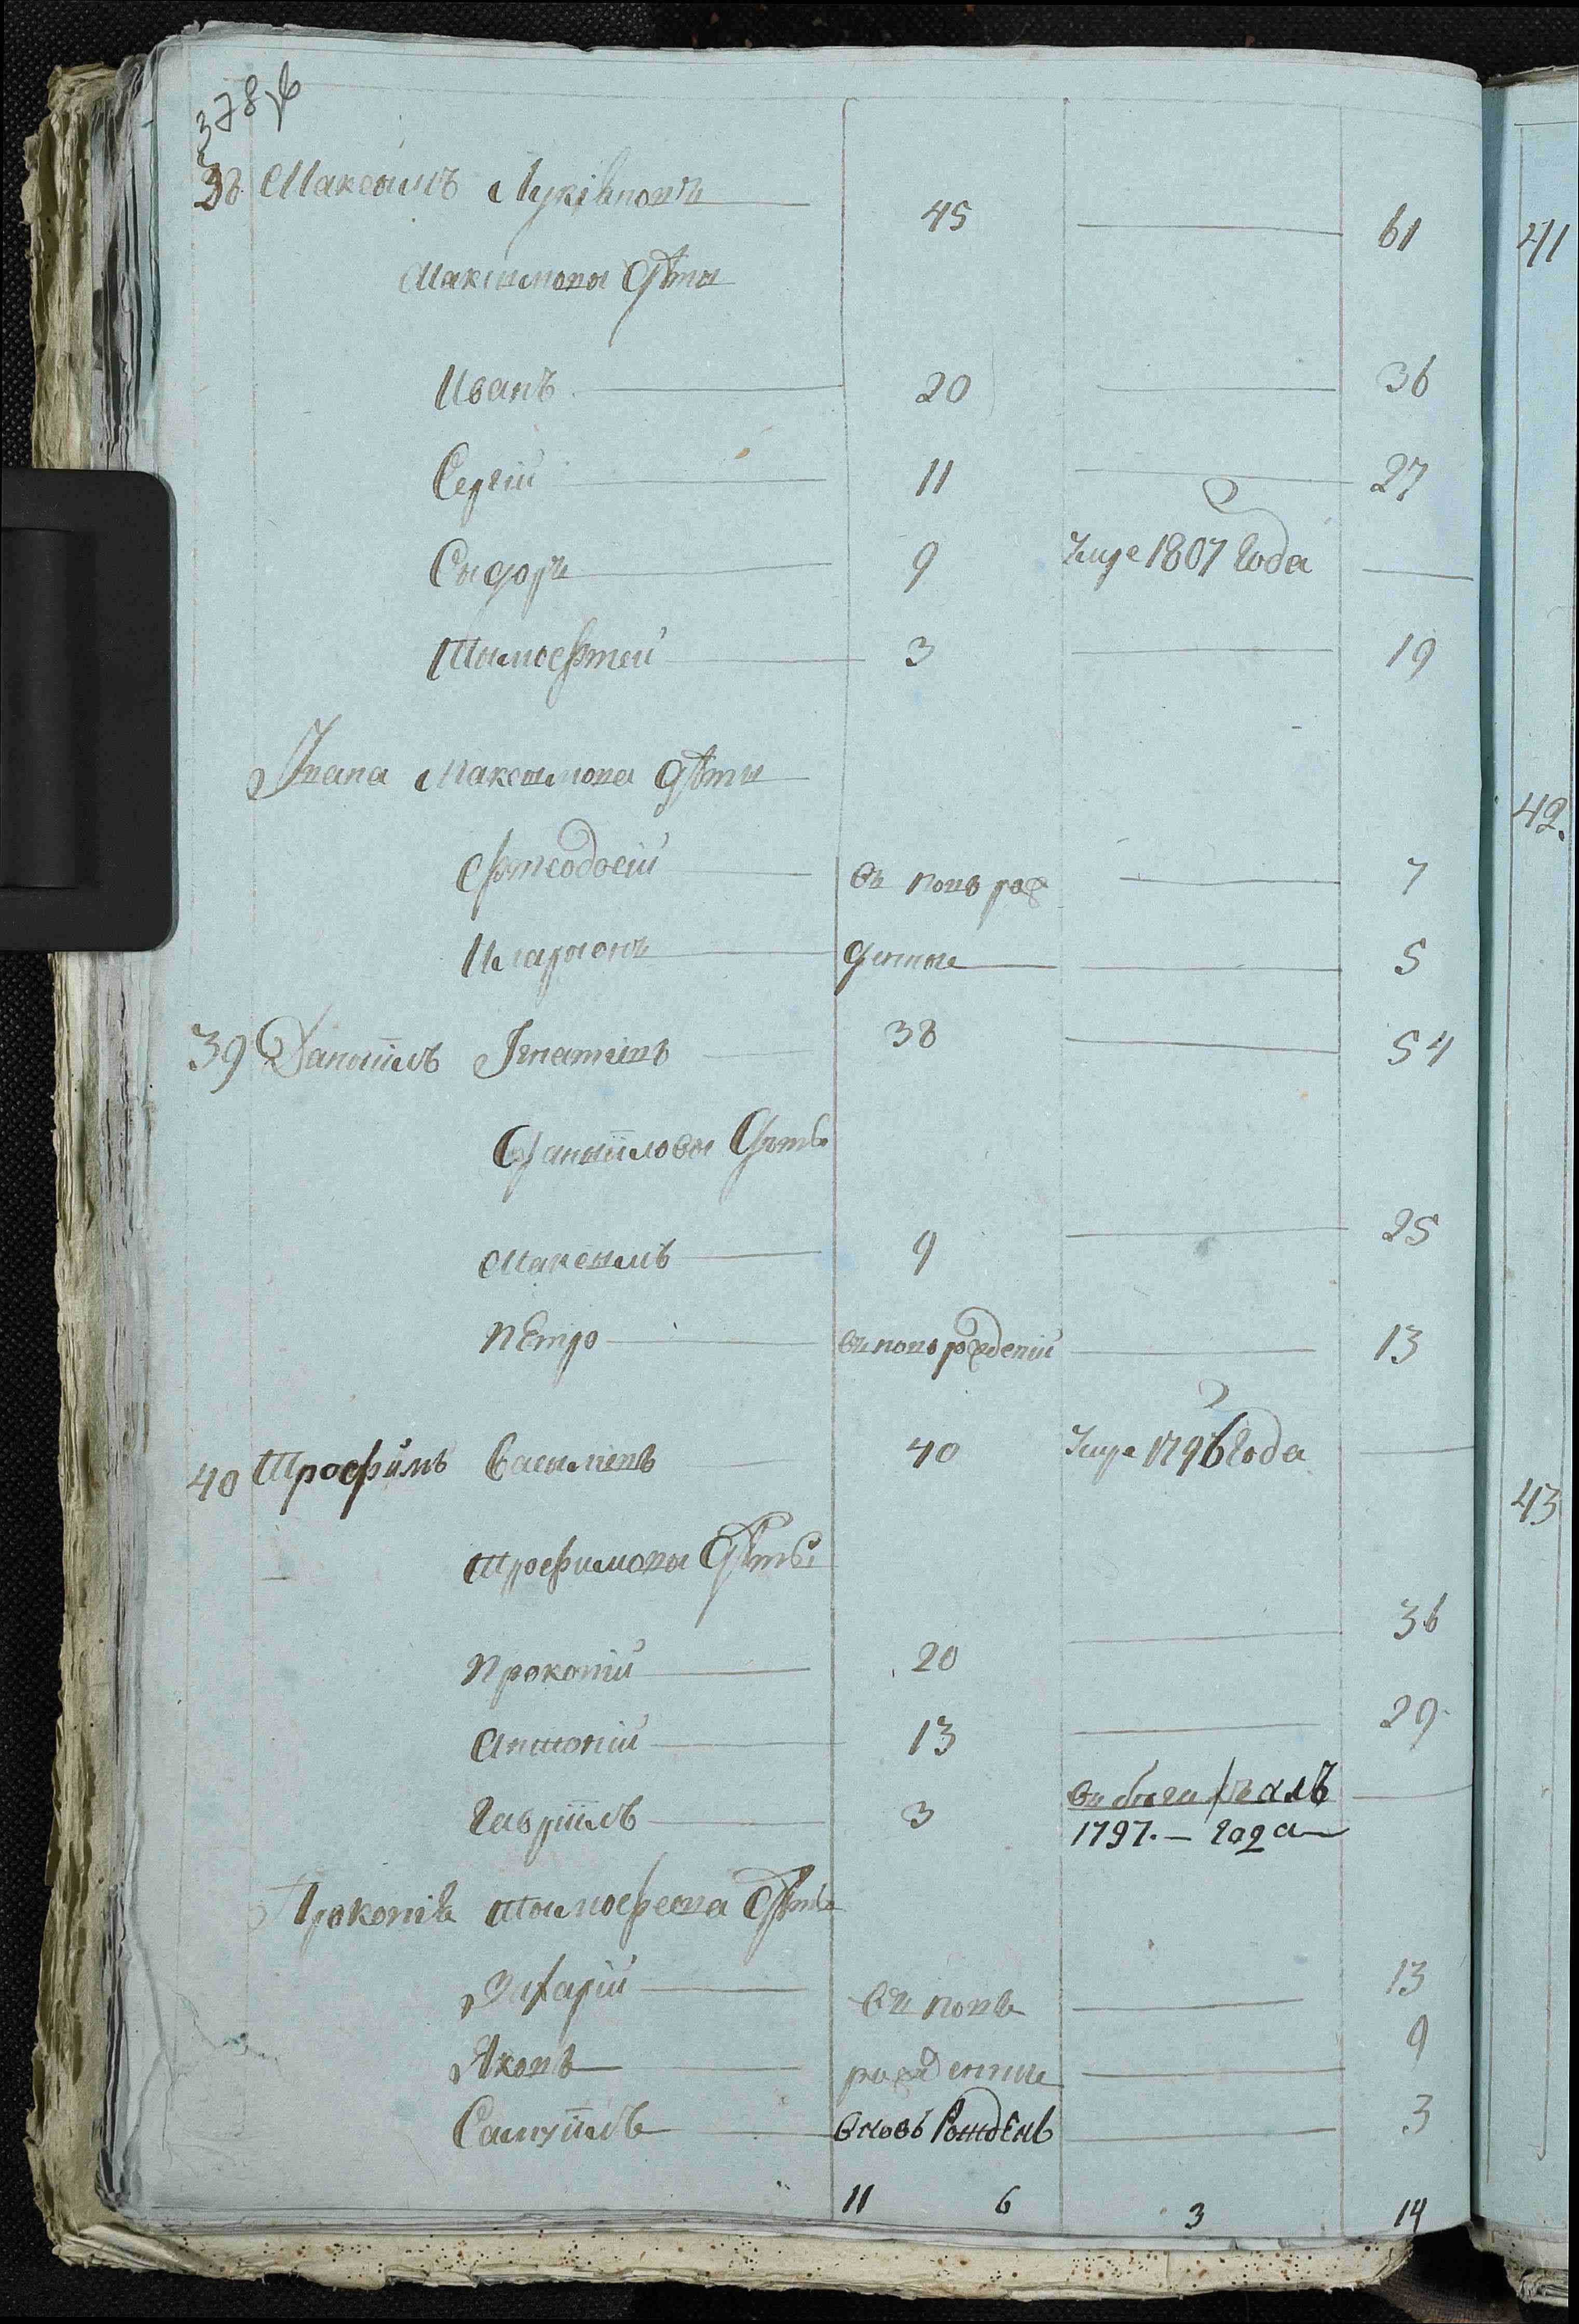 378об
38 Максимъ Лукіяновъ 45 61
Максимовы дѣти
Иванъ 20 36
Сергій 11 27
Сидоръ 9 умре 1807 года
Тимофтей 3 19
Ивана Максимова дѣти
Фтеодосій въ новѣ рож 7
Иларионъ денные 5
39 Даниилъ Игнатіевъ 38 54
Данииловы дѣти
Максимъ 9 25
Петро въ новорожденій 13
40 Трофимъ Василіевъ 40 умре 1796 года
Трофимовы дѣти
Прокопій 20 36
Антоній 13 29
Гавріилъ 3 въ бѣгахъ
1797. – года
Прокопія дѣти
Захарій въ новѣ 13
Яковъ рожденные 9
Самуилъ вновь рожденъ 3
11 6 3 14
41
42.
43